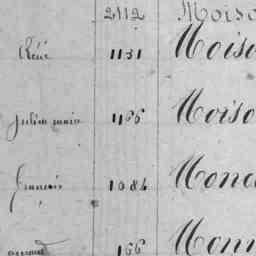 2112 Moiso
René 1131 Mois
Julien marie 1166 Moiso
François 1084 Mon
166 Monn